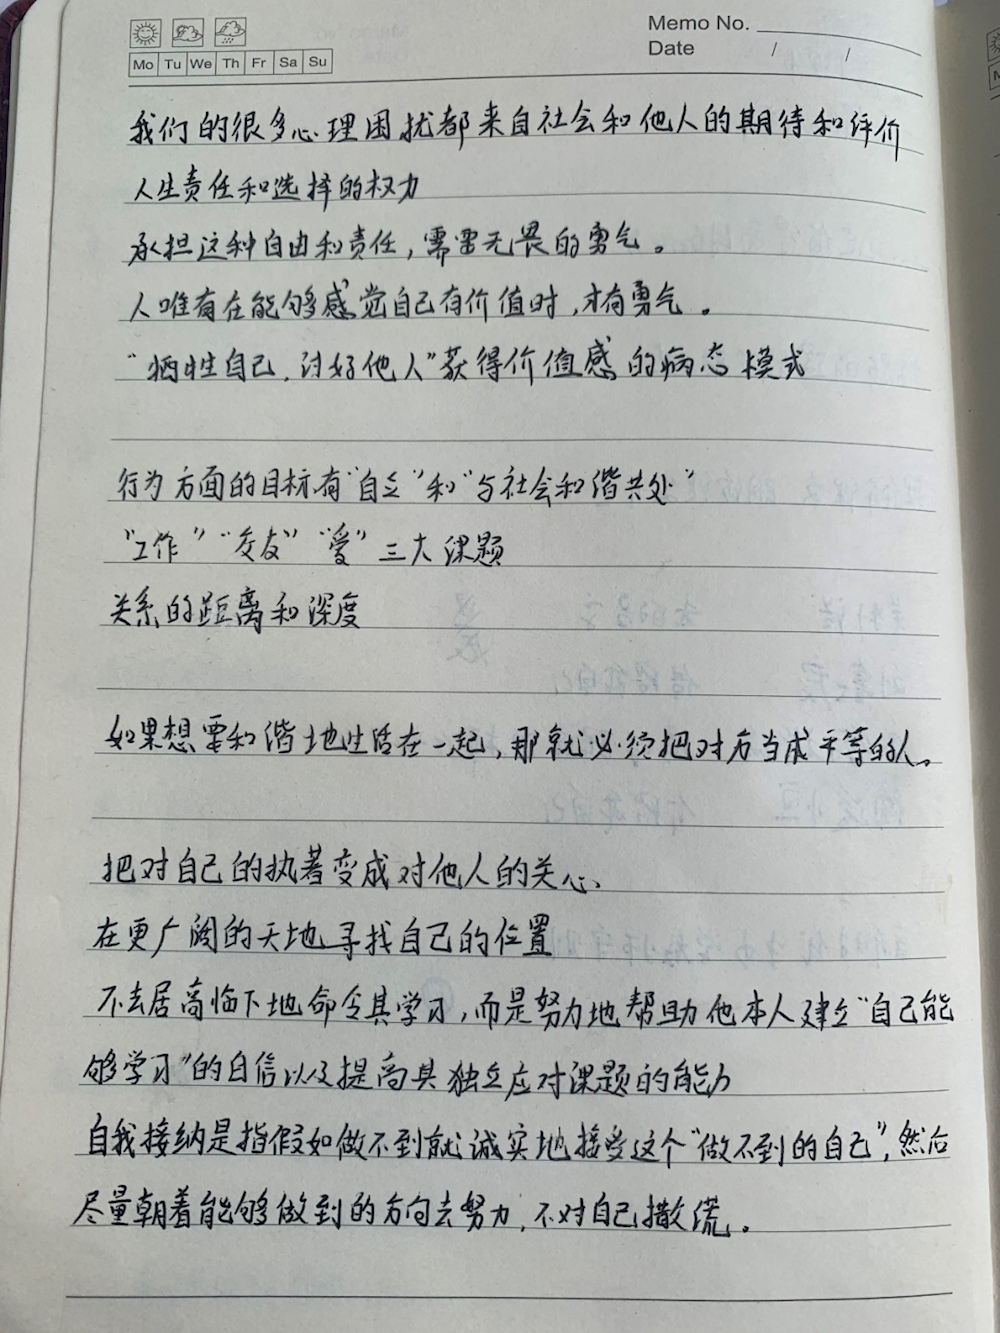 Memo No.
Date / /
Mo Tu We Th Fr Sa Su
我们的很多心理困扰都来自社会和他人的期待和评价
人生责任和选择的权力
承担这种自由和责任，需要无畏的勇气。
人唯有在能够感觉自己有价值时，才有勇气。
“牺牲自己，讨好他人”获得价值感的病态模式
行为方面的目标有“自立”和“与社会和谐共处”
“工作”“交友”“爱”三大课题
关系的距离和深度
如果想要和谐地生活在一起，那就必须把对方当成平等的人。
把对自己的执著变成对他人的关心、
在更广阔的天地寻找自己的位置
不去居高临下地命令其学习，而是努力地帮助他本人建立“自己能
够学习”的自信以及提高其独立应对课题的能力
自我接纳是指假如做不到就诚实地接受这个“做不到的自己”，然后
尽量朝着能够做到的方向去努力，不对自己撒谎。